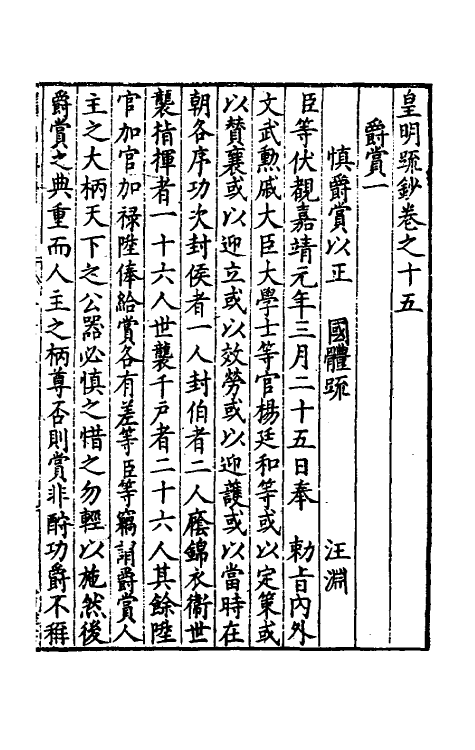 皇明疏鈔卷之十五
爵賞一
慎爵賞以正國體疏 汪淵
臣等伏覩嘉靖元年三月二十五日奉 勑旨內外
文武勲戚大臣大學士等官楊廷和等或以定策或
以賛襄或以迎立或以效勞或以迎護或以當時在
朝各序功次封侯者一人封伯者二人廕錦衣衞世
襲指揮者一十六人世襲千戶者二十六人其餘陞
官加官加祿陞俸給賞各有差等臣等竊謂爵賞人
主之大柄天下之公器必慎之惜之勿輕以施然後
爵賞之典重而人主之柄尊否則賞非酧功爵不稱